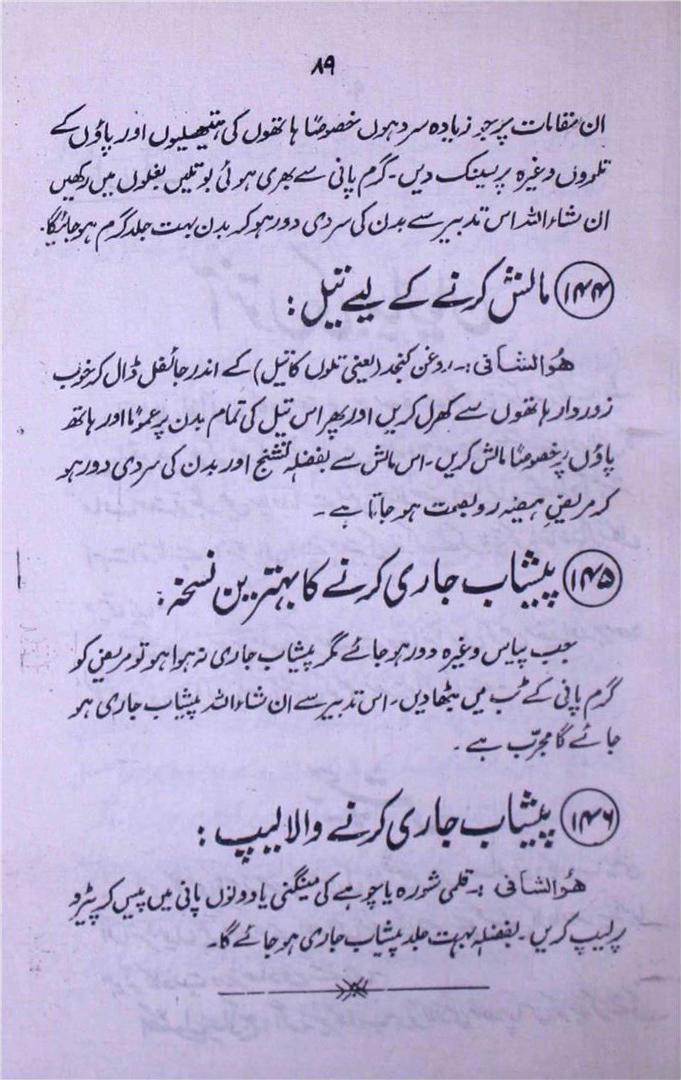 ۸۹
ان مقامات پر جو زیادہ سرد ہوں خصوصًا ہاتھوں کی ہتھیلیوں اور پاؤں کے
تلووں وغیرہ پر سینک دیں۔ گرم پانی سے بھری ہوئی بوتلیں بغلوں میں رکھیں
ان شاء اللہ اس تدبیر سے بدن کی سردی دور ہو کر بدن بہت جلد گرم ہو جائیگا۔
۱۴۴ مالش کرنے کے لیے تیل :
ھُوالشافی :۔ روغن کنجد (یعنی تلوں کا تیل) کے اندر جائفل ڈال کر خوب
زوردار ہاتھوں سے کھرل کریں اور پھر اس تیل کی تمام بدن پر عمومًا اور ہاتھ
پاؤں پر خصوصًا مالش کریں۔ اس مالش سے بفضلہٖ تشنج اور بدن کی سردی دور ہو
کر مریضِ ہیضہ رو بصحت ہو جاتا ہے۔
۱۴۵ پیشاب جاری کرنے کا بہترین نسخہ :
جب پیاس وغیرہ دور ہو جائے مگر پیشاب جاری نہ ہوا ہو تو مریض کو
گرم پانی کے ٹب میں بٹھا دیں۔ اس تدبیر سے ان شاء اللہ پیشاب جاری ہو
جائے گا مجرّب ہے۔
۱۴۶ پیشاب جاری کرنے والا لیپ :
ھُوالشافی :۔ قلمی شورہ یا چوہے کی مینگنی یا دونوں پانی میں پیس کر پیڑو
پر لیپ کریں۔ بفضلہٖ بہت جلد پیشاب جاری ہو جائے گا۔